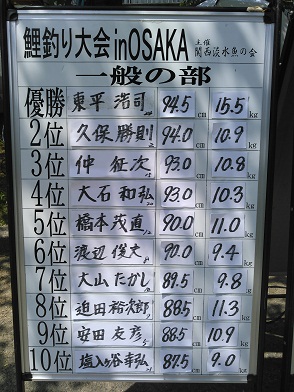 鯉釣り大会 inOSAKA 主催 関西淡水魚の会
一般の部
優勝 東平 浩司 94.5cm 15.5kg
2位 久保 勝則 94.0cm 10.9kg
3位 仲 征次 93.0cm 10.8kg
4位 大石 和弘 93.0cm 10.3kg
5位 橋本茂直 90.0cm 11.0kg
6位 渡辺 俊文 90.0cm 9.4kg
7位 大山 たかし 89.5cm 9.8g
8位 迫田 裕次郎 88.5cm 11.3kg
9位 安田 友彦 88.5cm 10.9kg
10位 塩入ヶ谷 幸弘 87.5cm 9.0kg